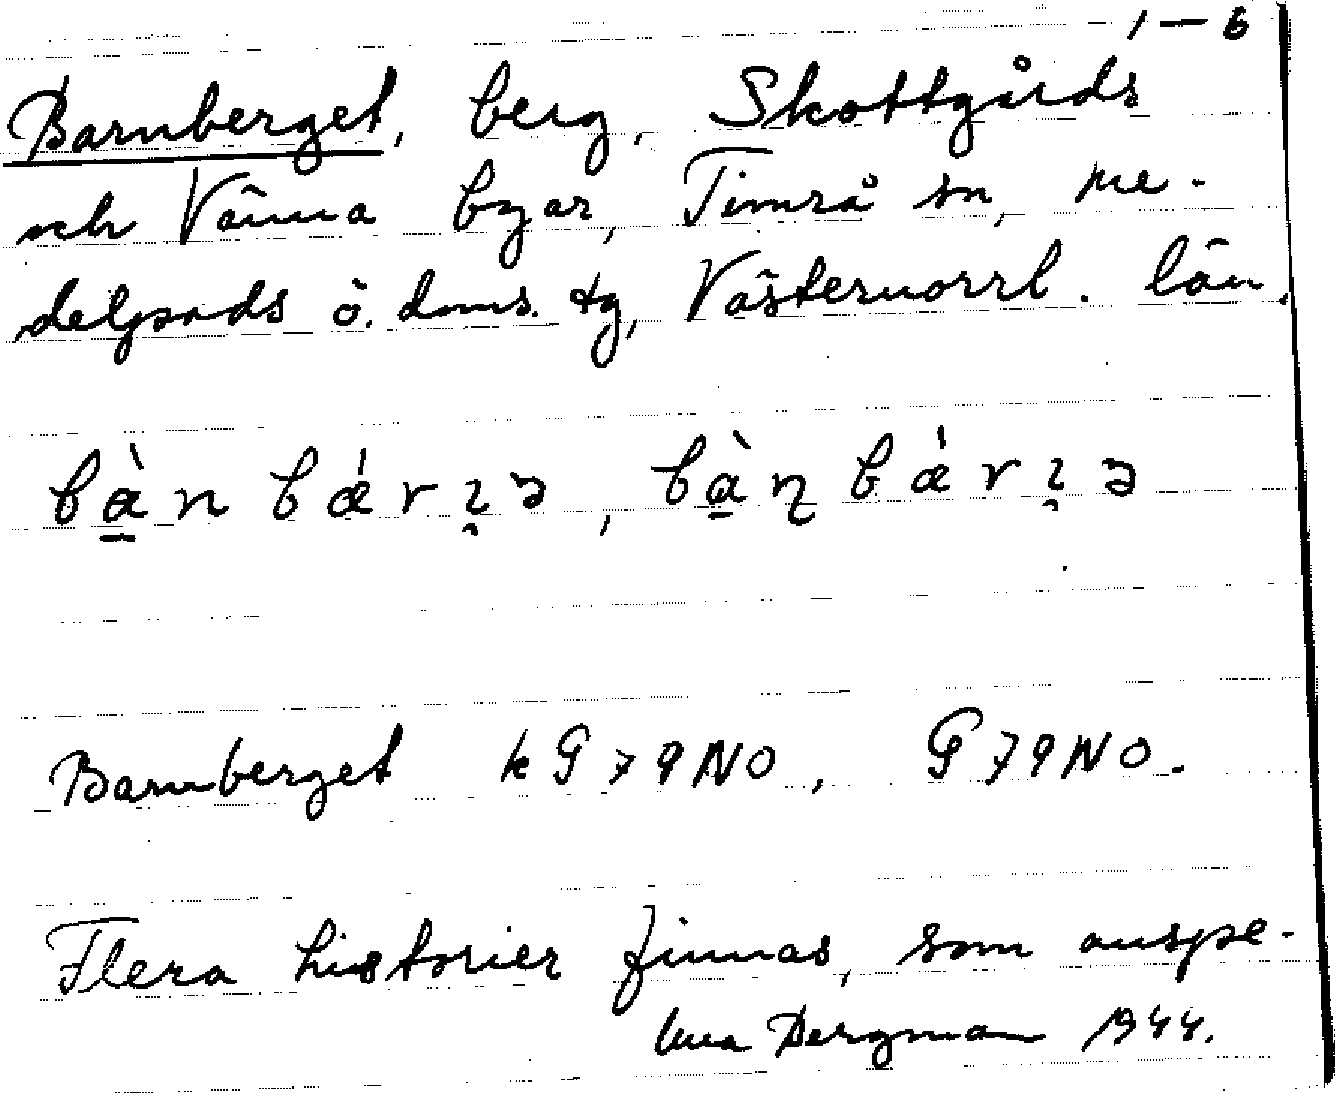 1–6
Barnberget, berg, Skottgårds
och Vänna byar, Timrå sn, Me-
delpads ö. doms. tg, Västernorrl. län.
bàn bǽrɩ̯ə, bàɳ bǽrɩ̯ə
Barnberget kG79NO, G79NO.
Flera historier finnas, som anspe-
Bergman 1944.